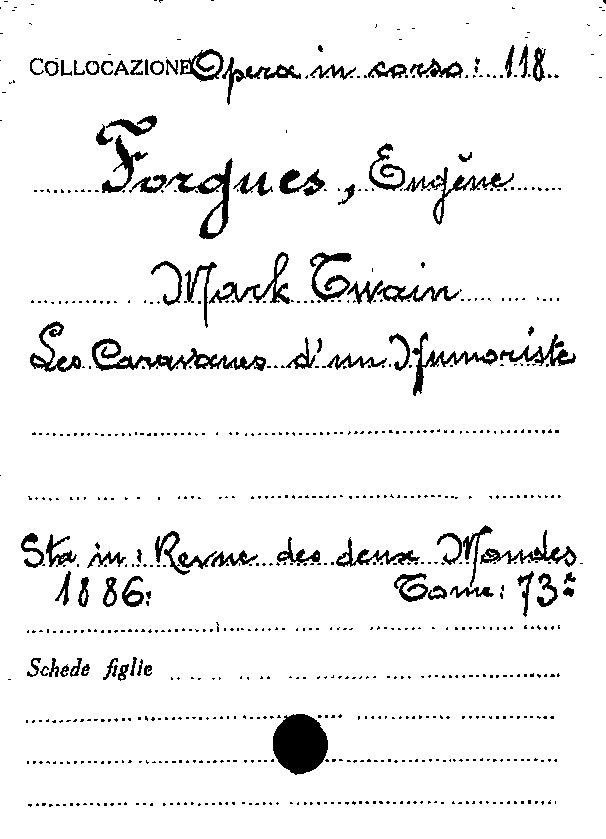 COLLOCAZIONE Opera in corso: 118
Forgues, Eugène
Mark Twain
Les Caravanes d'un Humoriste
Sta in: Revue des deux Mondes
1886: Tome: 73e
Schede figlie